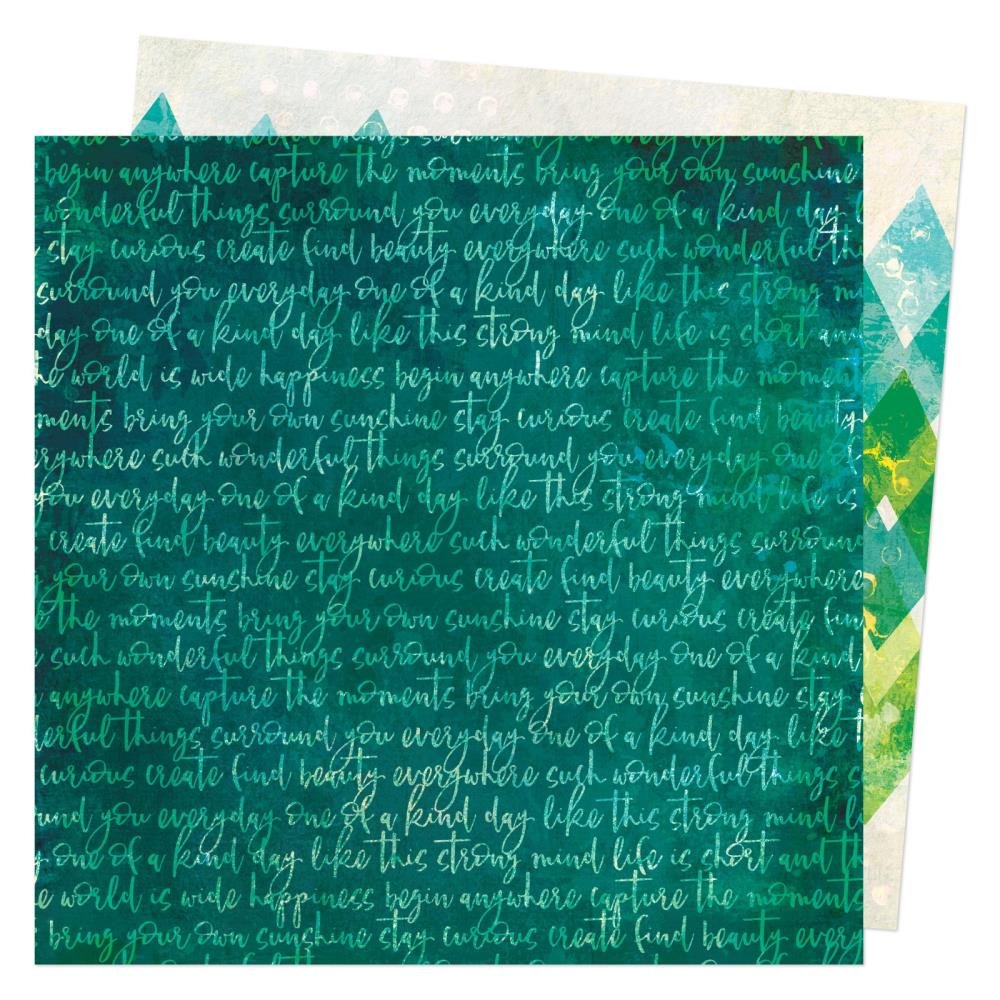 begin anywhere capture the moments bring your own sunshine
wonderful things surround you everyday one of a kind day
stay curious create find beauty everywhere such wonderful th
surround you everyday one of a kind day like this strong m
day one of a kind day like this strong mind life is short an
he world is wide happiness begin anywhere capture the momen
ments bring your own sunshine stay curious create find beauty
rywhere such wonderful things surround you everyday one of
you everyday one of a kind day like this strong mind life is
create find beauty everywhere such wonderful things surroun
your own sunshine stay curious create find beauty everywhere
e the moments bring your own sunshine stay curious create fin
such wonderful things surround you everyday one of a kind
anywhere capture the moments bring your own sunshine stay
derful things surround you everyday one of a kind day like t
curious create find beauty everywhere such wonderful things s
und you everyday one of a kind day like this strong mind l
one of a kind day like this strong mind life is short and th
e world is wide happiness begin anywhere capture the moments
bring your own sunshine stay curious create find beauty every